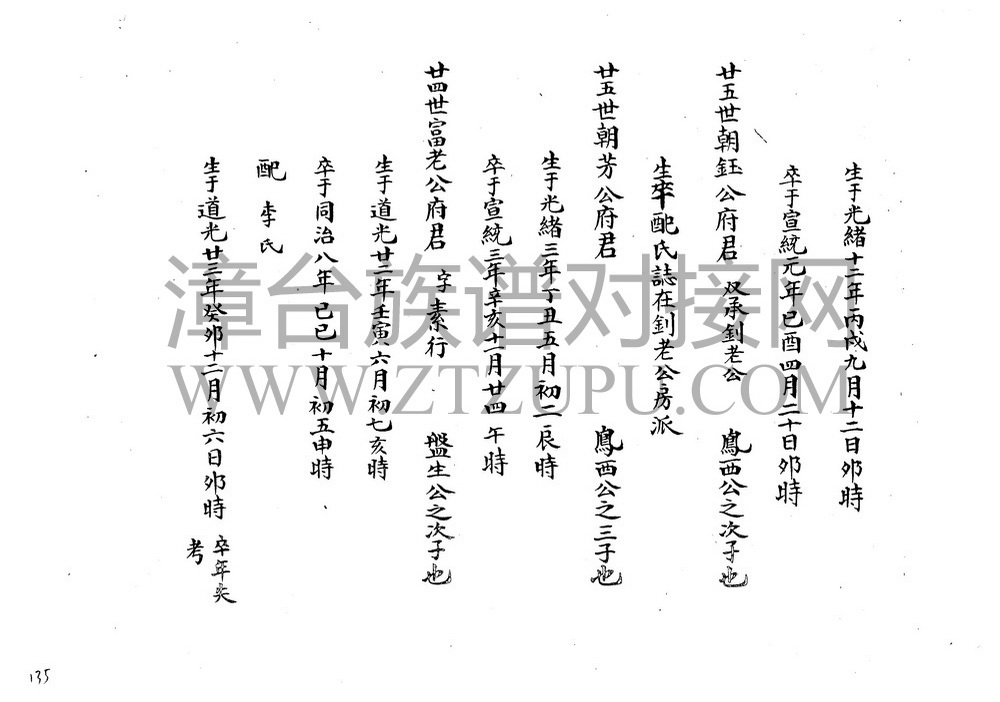 生于光緒十二年丙戌九月十二日夘時
卒于宣統元年己酉四月二十日夘時
廿五世朝鈺公府君 双承釗老公 鳳西公之次子也
生卒配氏誌在釗老公房派
廿五世朝芳公府君 鳳西公之三子也
生于光緒三年丁丑五月初二辰時
卒于宣統三年辛亥十二月廿四午時
廿四世富老公府君 字素行 盤生公之次子也
生于道光廿二年壬寅六月初七亥時
卒于同治八年己巳十月初五申時
配李氏
生于道光廿三年癸夘十二月初六日夘時 卒年失
考
漳台族谱对接网
WWW.ZTZUPU.COM
135